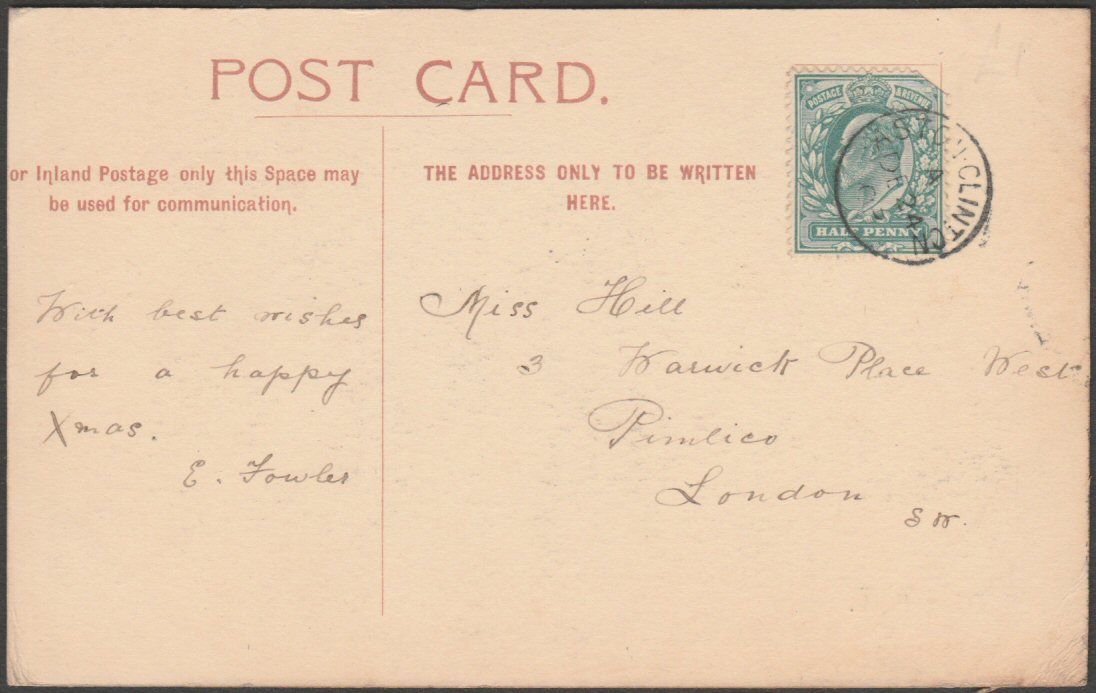 POST CARD.
or Inland Postage only this Space may
be used for communication.
THE ADDRESS ONLY TO BE WRITTEN
HERE.
POSTAGE & REVENUE
HALF PENNY
ASTON-CLINTON
A
DE 24
With best wishes
for a happy
Xmas.
E. Fowler
Miss Hill
3 Warwick Place West
Pimlico
London
S W.
£1